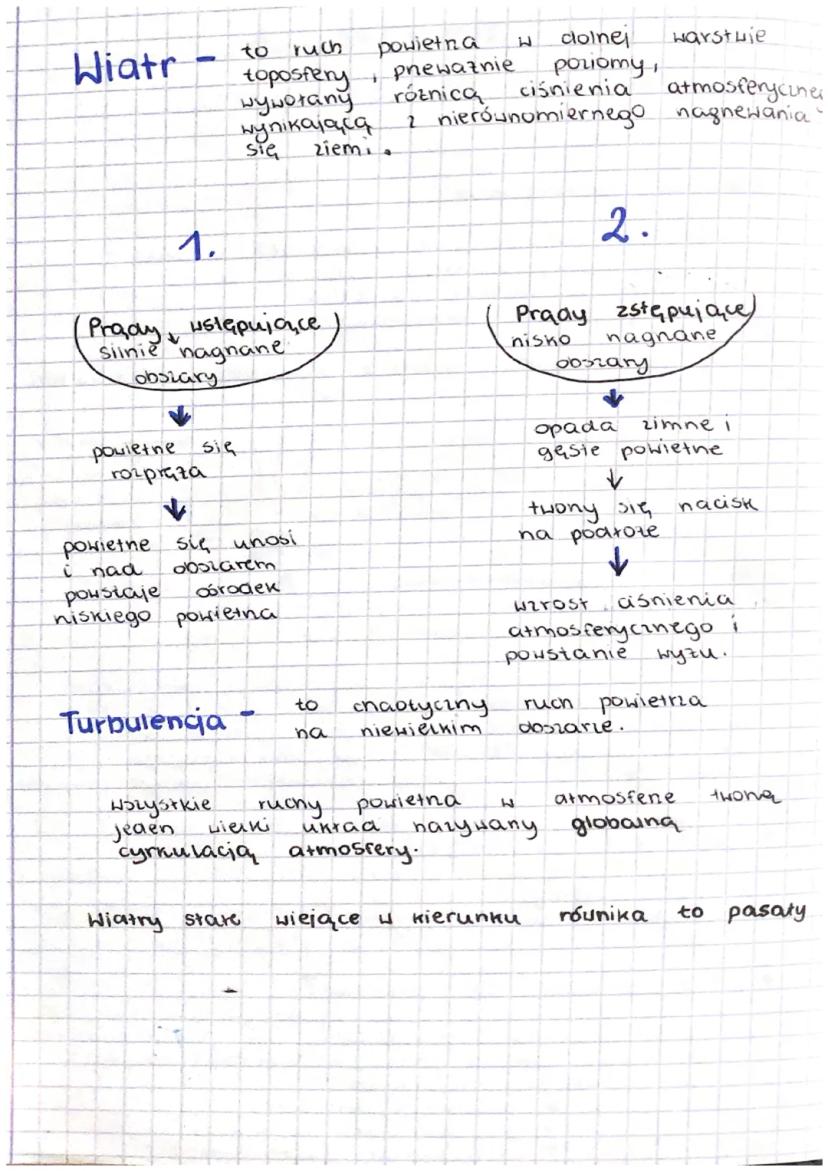 Wiatr - to ruch powietrza w dolnej warstwie
toposfery, przeważnie poziomy,
wywołany różnicą ciśnienia atmosferycznej
wynikającą z nierównomiernego nagrzewania
się ziemi.
1.
Prądy wstępujące
silnie nagrzane
obszary
powietrze się
rozpręża
powietrze się unosi
i nad obszarem
powstaje ośrodek
niskiego powietrza
2.
Prądy zstępujące
nisko nagrzane
obszary
opada zimne i
gęste powietrze
tworzy się nacisk
na podłoże
wzrost ciśnienia
atmosferycznego i
powstanie wyżu.
Turbulencja - to chaotyczny ruch powietrza
na niewielkim obszarze.
Wszystkie ruchy powietrza w atmosferze tworzą
jeden wielki układ nazywany globalną
cyrkulacją atmosfery.
Wiatry stałe wiejące w kierunku równika to pasaty